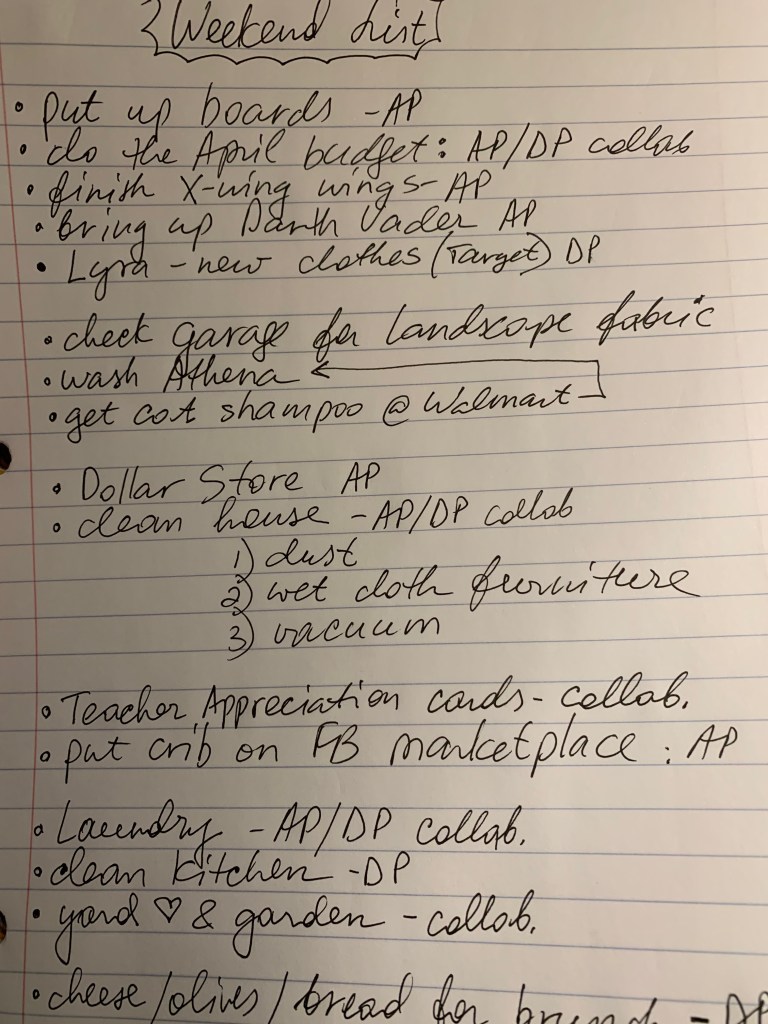 Weekend List
• put up boards - AP
• do the April budget: AP/DP collab
• finish X-wing wings - AP
• bring up Darth Vader AP
• Lyra - new clothes (Target) DP
• check garage for landscape fabric
• wash Athena ←
• get cat shampoo @ Walmart
• Dollar Store AP
• clean house - AP/DP collab
1) dust
2) wet cloth furniture
3) vacuum
• Teacher Appreciation cards - collab.
• put crib on FB marketplace : AP
• Laundry - AP/DP collab.
• clean kitchen - DP
• yard ♡ & garden - collab.
• cheese/olives/bread for brunch -